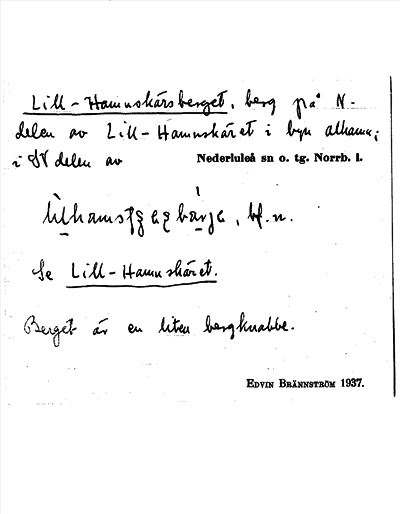 Lill-Hamnskärsberget, berg på N-
delen av Lill-Hamnskäret i byn allmänn;
i SV delen av Nederluleå sn o. tg. Norrb. l.
bf. n.
Se Lill-Hamnskäret.
Berget är en liten bergknabbe.
EDVIN BRÄNNSTRÖM 1937.